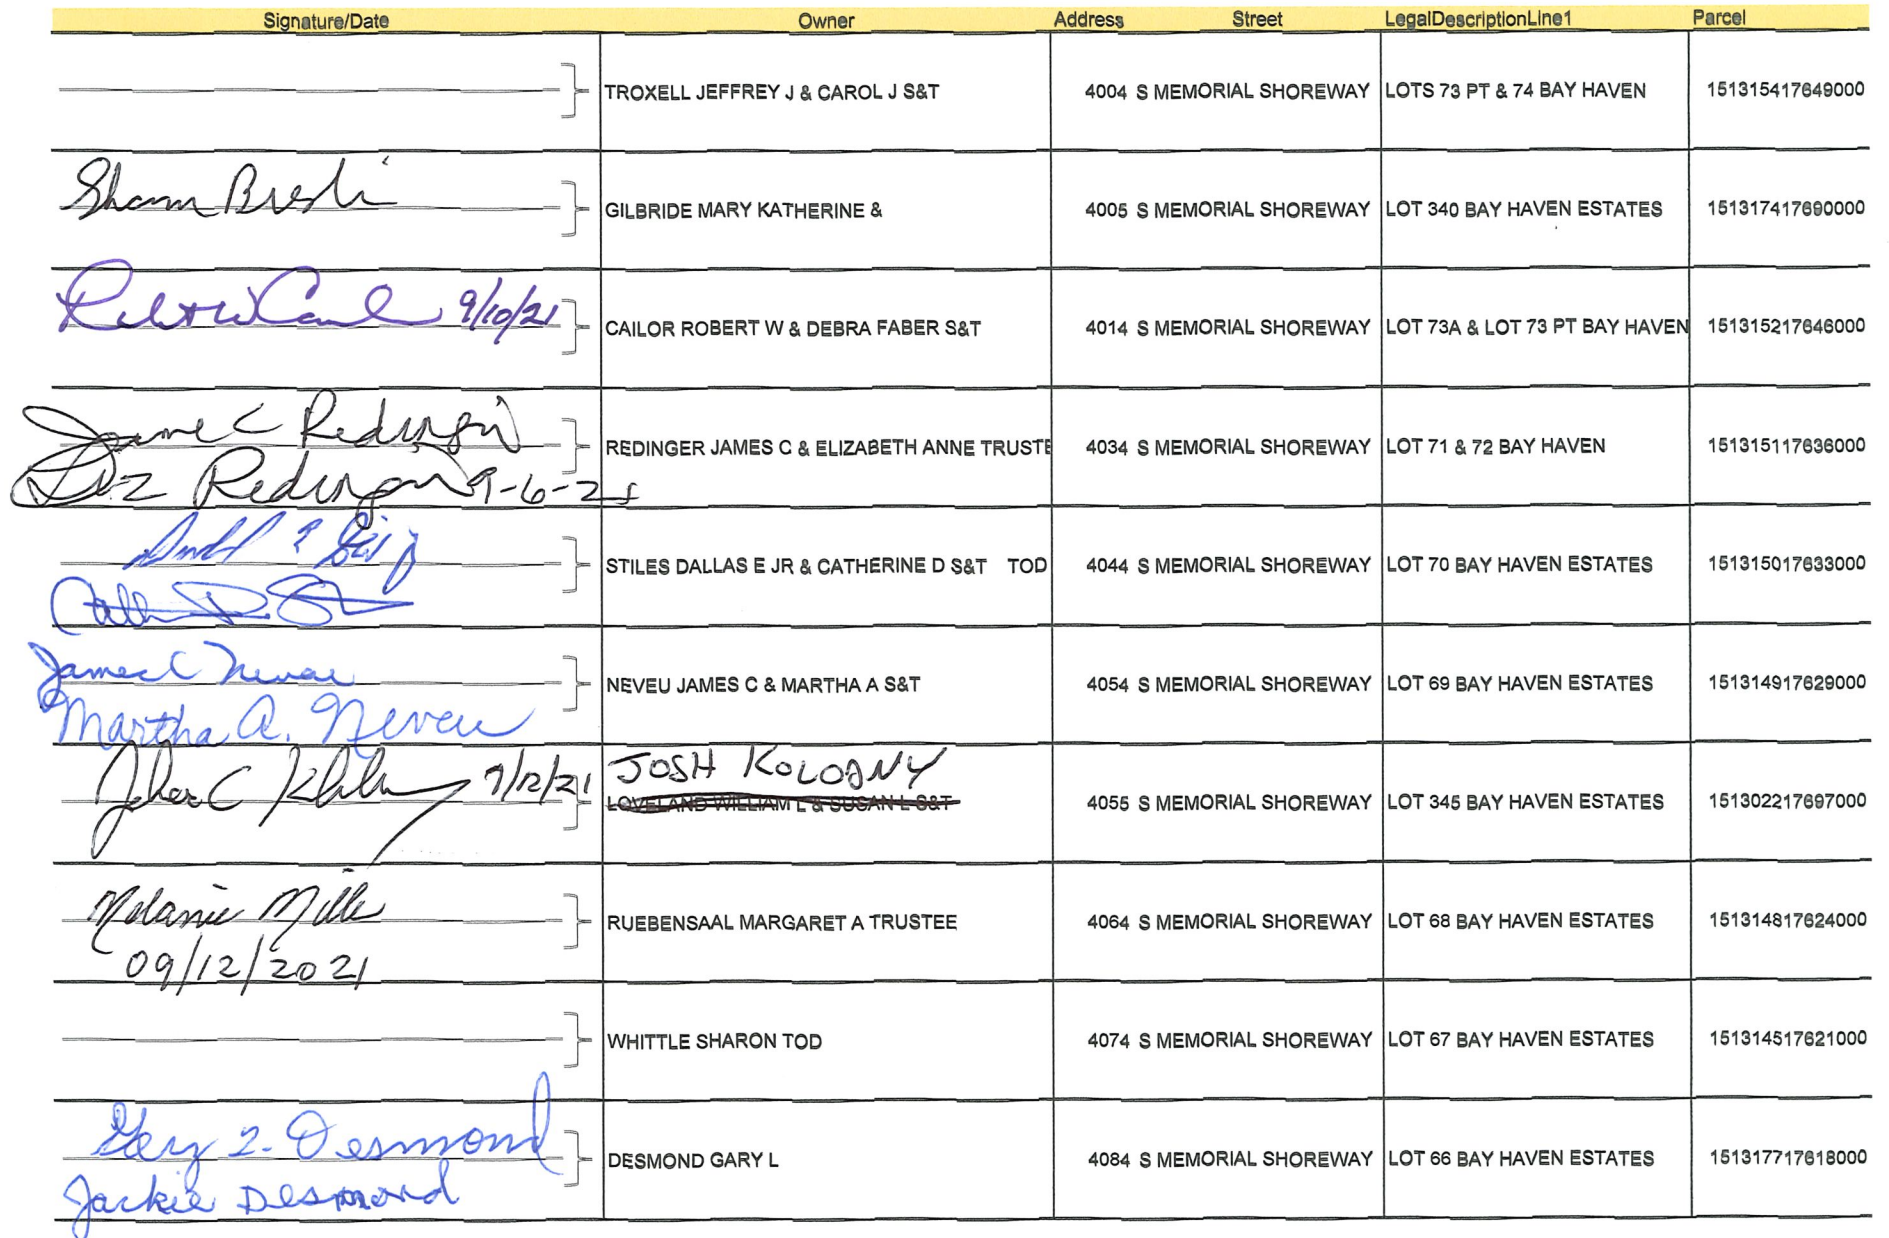 Signature/Date Owner Address Street LegalDescriptionLine1 Parcel
TROXELL JEFFREY J & CAROL J S&T 4004 S MEMORIAL SHOREWAY LOTS 73 PT & 74 BAY HAVEN 151315417649000
GILBRIDE MARY KATHERINE & 4005 S MEMORIAL SHOREWAY LOT 340 BAY HAVEN ESTATES 151317417690000
9/10/21 CAILOR ROBERT W & DEBRA FABER S&T 4014 S MEMORIAL SHOREWAY LOT 73A & LOT 73 PT BAY HAVEN 151315217646000
James C Redinger
REDINGER JAMES C & ELIZABETH ANNE TRUSTE 4034 S MEMORIAL SHOREWAY LOT 71 & 72 BAY HAVEN 151315117636000
Liz Redinger 9-6-21
STILES DALLAS E JR & CATHERINE D S&T TOD 4044 S MEMORIAL SHOREWAY LOT 70 BAY HAVEN ESTATES 151315017633000
James C Neveu
NEVEU JAMES C & MARTHA A S&T 4054 S MEMORIAL SHOREWAY LOT 69 BAY HAVEN ESTATES 151314917629000
Martha A. Neveu
9/12/21 JOSH KOLODNY
LOVELAND WILLIAM L & SUSAN L S&T 4055 S MEMORIAL SHOREWAY LOT 345 BAY HAVEN ESTATES 151302217697000
Melanie Mille
RUEBENSAAL MARGARET A TRUSTEE 4064 S MEMORIAL SHOREWAY LOT 68 BAY HAVEN ESTATES 151314817624000
09/12/2021
WHITTLE SHARON TOD 4074 S MEMORIAL SHOREWAY LOT 67 BAY HAVEN ESTATES 151314517621000
Gary L. Desmond
DESMOND GARY L 4084 S MEMORIAL SHOREWAY LOT 66 BAY HAVEN ESTATES 151317717618000
Jackie Desmond